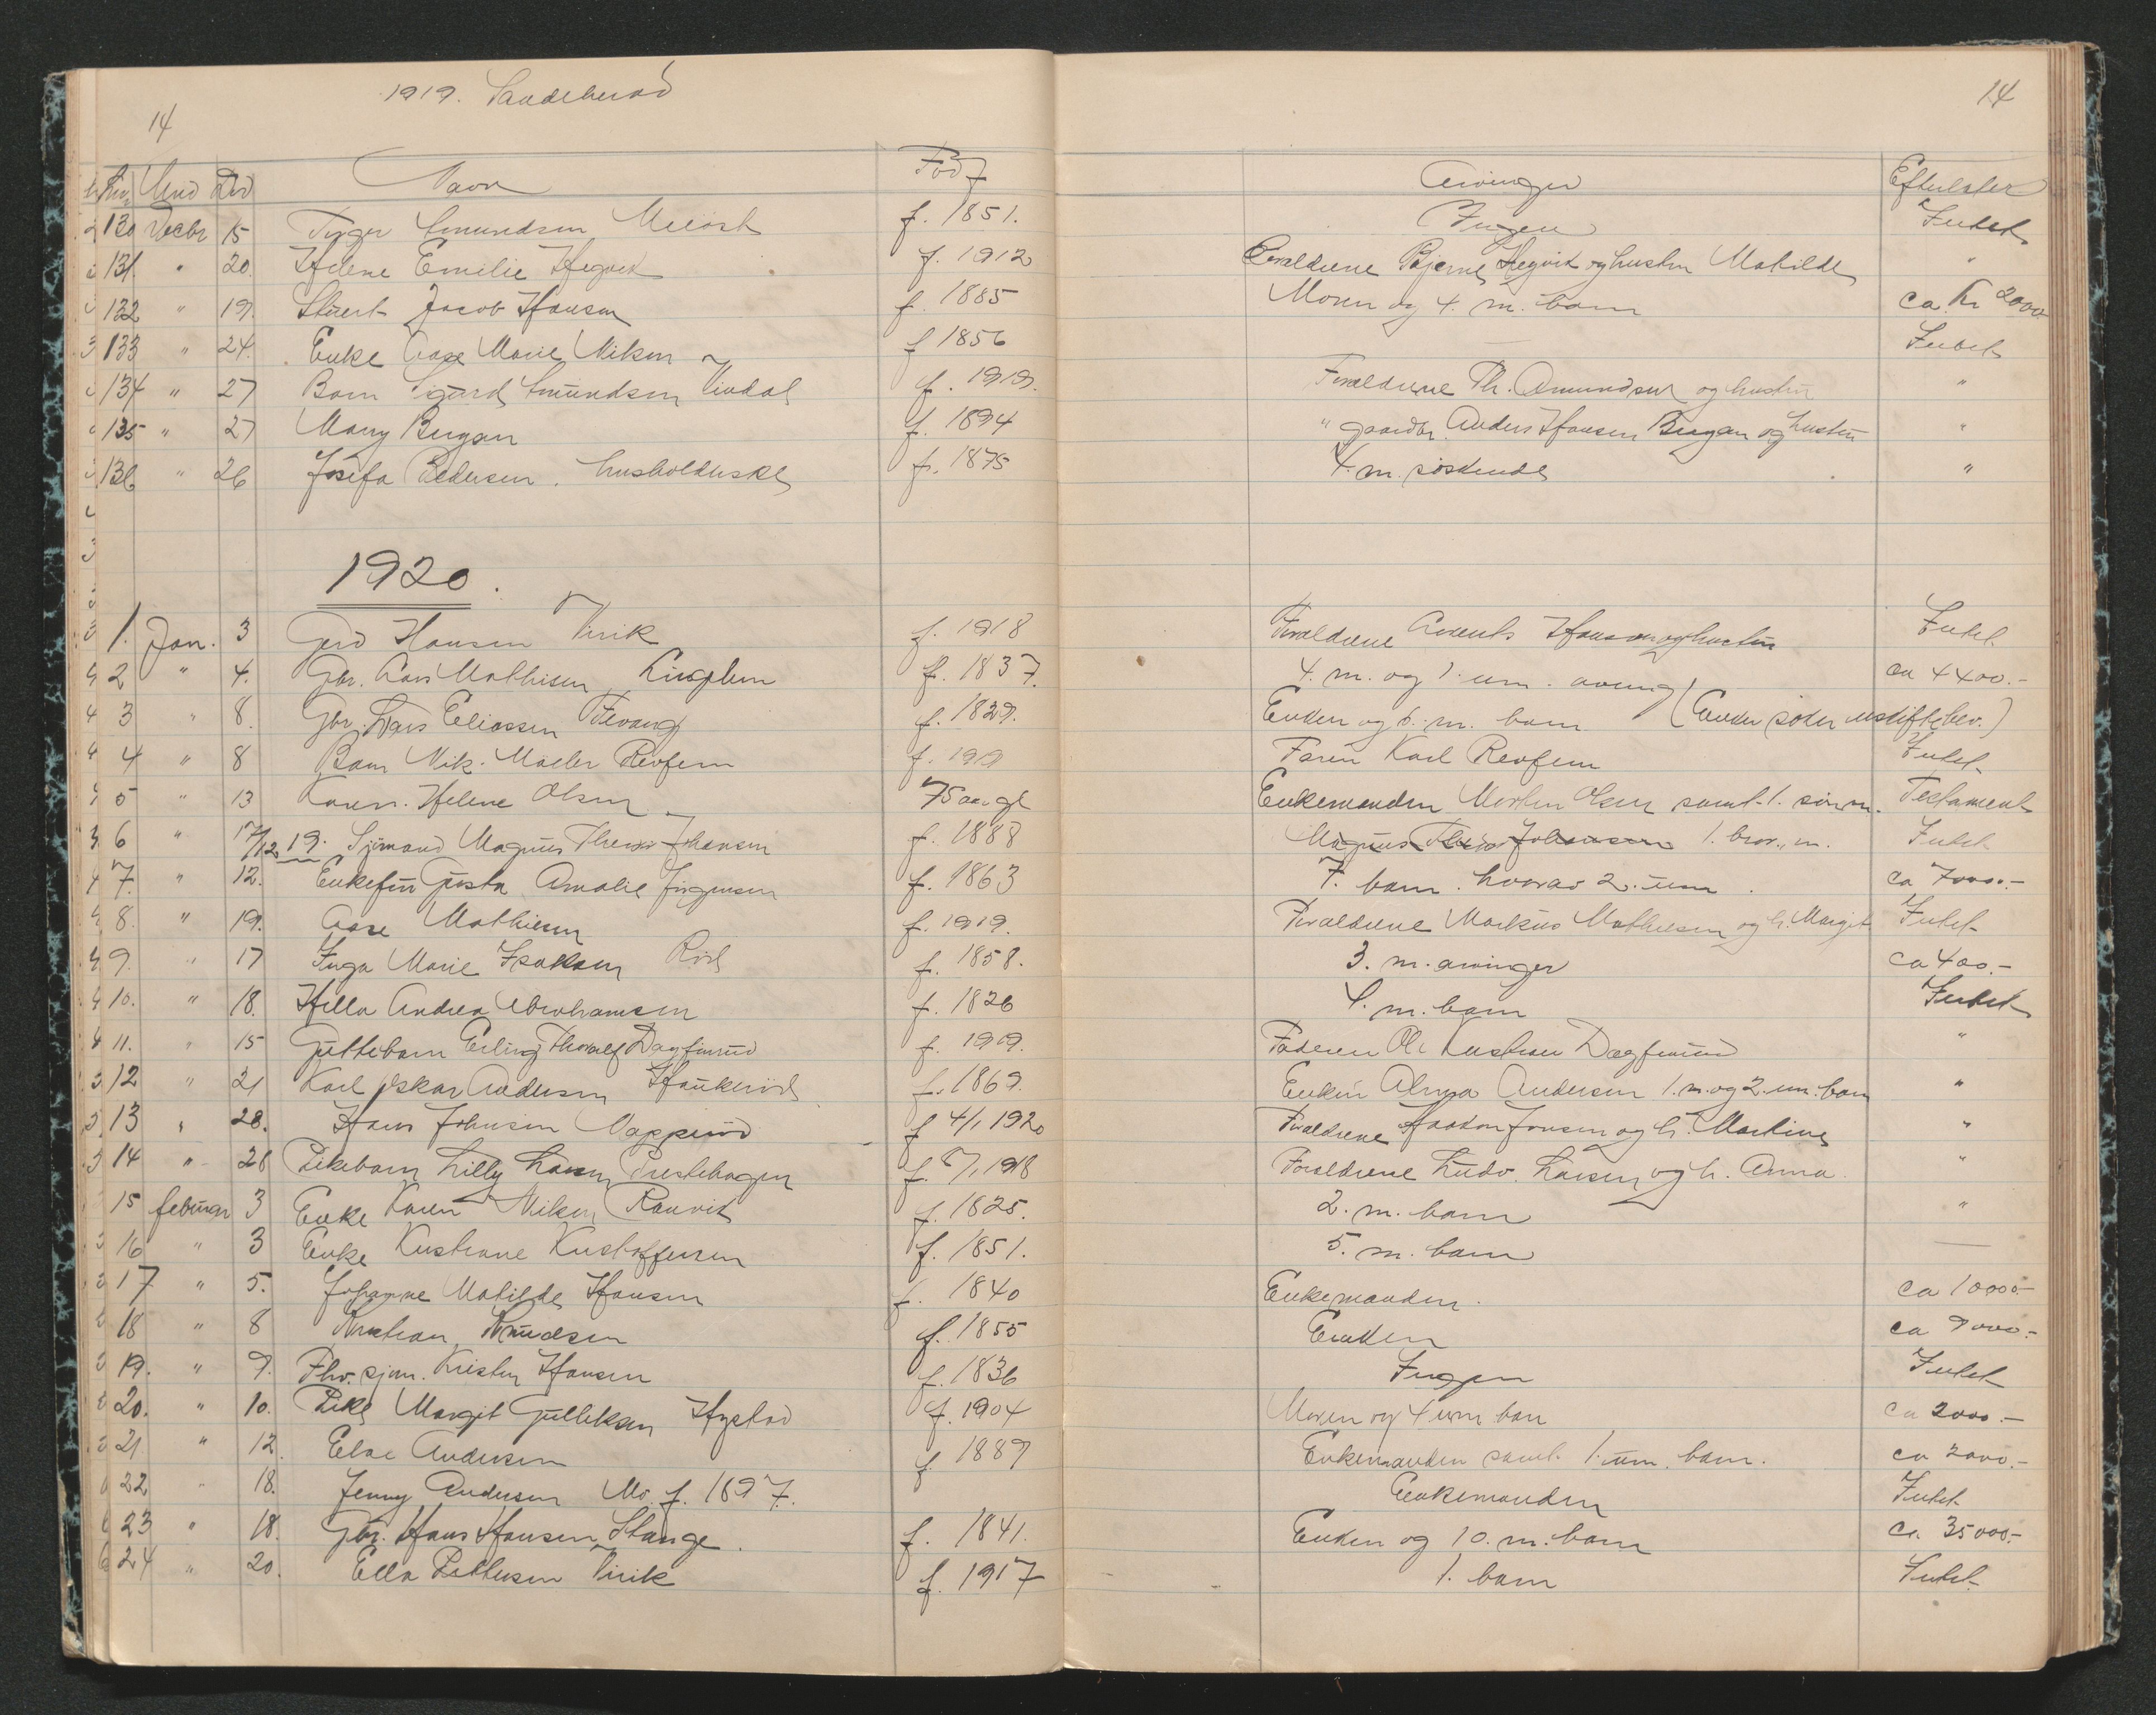 14
1919. Sandeherad
14
No. Mnd Dag Navn Født Arvinger Efterlater
130 Decbr 15 Amundsen f. 1851. Ingen Intet
131 " 20. Helene Emilie Hegvik f. 1912 Foreldrene Bjerne Hegvik og hustru Matilde "
132 " 19. Stuert Jacob Hansen f. 1885 Moren og 4. m. barn ca. Kr 2000
133 " 24. Enke Aase Marie Nilsen f 1856 Intet
134 " 27 Barn Sigurd Amundsen Vindal f. 1919. Foreldrene Th. Amundsen og hustru "
135 " 27 Mary Bergan f. 1894 " gaardbr. Anders Hansen Bergan og hustru "
136 " 26 Josefa Pedersen. husholderske f. 1875 4. m. søskende "
1920.
1. Jan. 3 Gerd Hansen Virik f. 1918 Foreldrene Hansen og hustru Intet
2 " 4. Gbr. Lars Mathisen f. 1837. 4. m. og 1. um. arving ca 4400.-
3 " 8. Gbr. Lars Eliassen Fevang f. 1829. Enken og 6. m. barn (Enken søker uskiftebev.)
4 " 8 Barn Nik. Møller Revfem f. 1919 Faren Karl Revfem Intet
5 " 13 Karen Helene Olsen 75 aar gl Enkemanden Morten Olsen samt 1. søn m. Testament
6 " 17/12 19. Sjømand Magnus Johansen f. 1888 Magnus Johansen 1. bror m. Intet
7. " 12. Enkefru Gusta Amalie Jørgensen f. 1863 7. barn. hvorav 2. um. ca 7000.-
8. " 19. Aase Mathisen f. 1919. Foreldrene Markus Mathisen og h. Margit Intet
9. " 17 Inga Marie Isaksen Rød f. 1858. 3. m. arvinger ca 400.-
10. " 18. Hella Andrea Abrahamsen f. 1826 m. barn Intet
11. " 15 Guttebarn Erling Thoralf Dagfinrud f. 1919. Faderen Ole Kristian Dagfinrud "
12 " 21 Karl Oskar Andersen Haukerød f. 1869. Enken Alma Andersen 1. m. og 2. um. barn "
13 " 28. Hans Johnsen f 4/1 1920 Foreldrene Haakon Jonsen og h. Martine "
14 " 28 Pikebarn Lilly Larsen Prestehagen f. 1918 Foreldrene Ludv. Larsen og h. Anna. "
15 februar 3 Enke Karen Nilsen Ranvik f. 1825. 2. m. barn "
16 " 3 Enke Kristiane Kristoffersen f. 1851. 5. m. barn —
17 " 5. Johanne Matilde Hansen f. 1840 Enkemanden. ca 10000.-
18 " 8 Kristian Knudsen f. 1855 Enken ca 9000.-
19. " 9. Fhv. sjøm. Kristen Hansen f. 1836 Ingen Intet
20. " 10. Pike Margit Gulliksen Hystad f. 1904 Moren og 4 um barn ca 2000.-
21 " 12. Else Andersen f. 1889 Enkemanden samt 1. um. barn. ca 2000.-
22 " 18. Jenny Andersen Mo. f. 1897. Enkemanden Intet
23 " 18. Gbr. Hans Hansen Stange. f. 1841. Enken og 10. m. barn ca 35000.-
24 " 20. Ella Pettersen Virik f. 1917 1. barn Intet